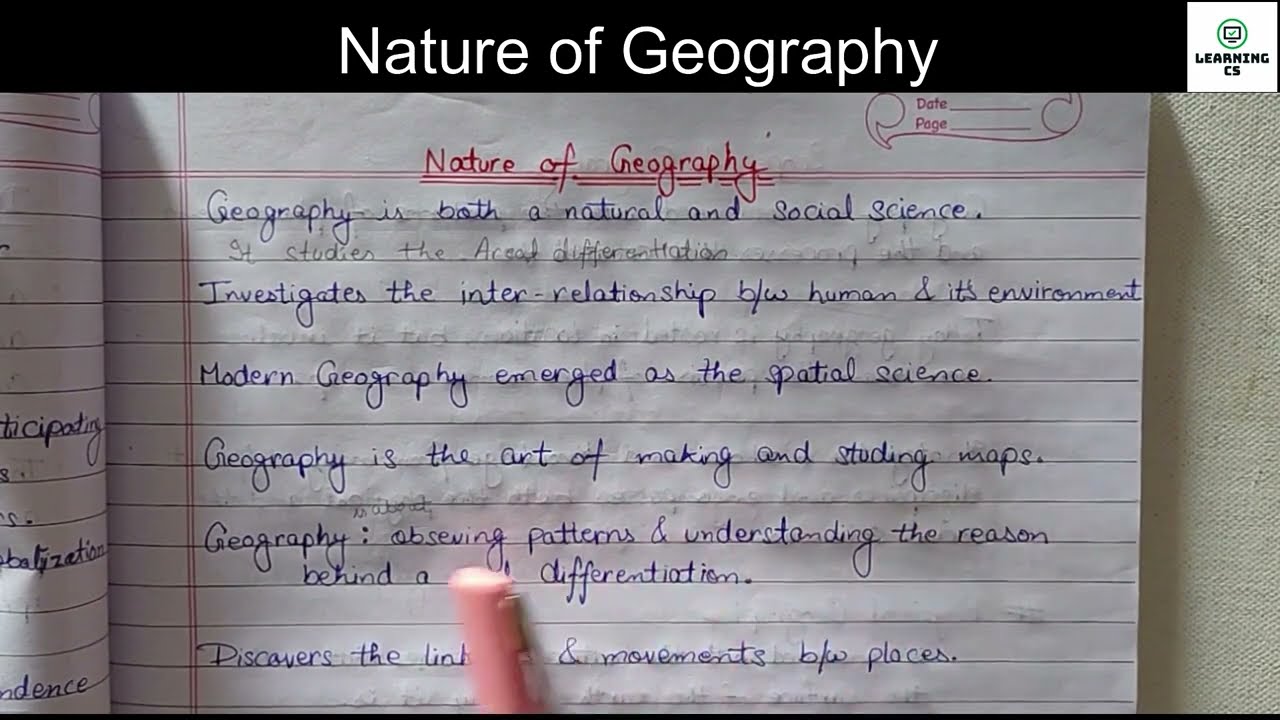 Nature of Geography
LEARNING
CS
Date
Page
Nature of Geography
Geography is both a natural and social science.
It studies the Areal differentiation
Investigates the inter-relationship b/w human & its environment
Modern Geography emerged as the spatial science.
Geography is the art of making and studing maps.
is about
Geography : obseving patterns & understanding the reason
behind a differentiation.
Discovers the & movements b/w places.
ticipating
s.
balization
ndence